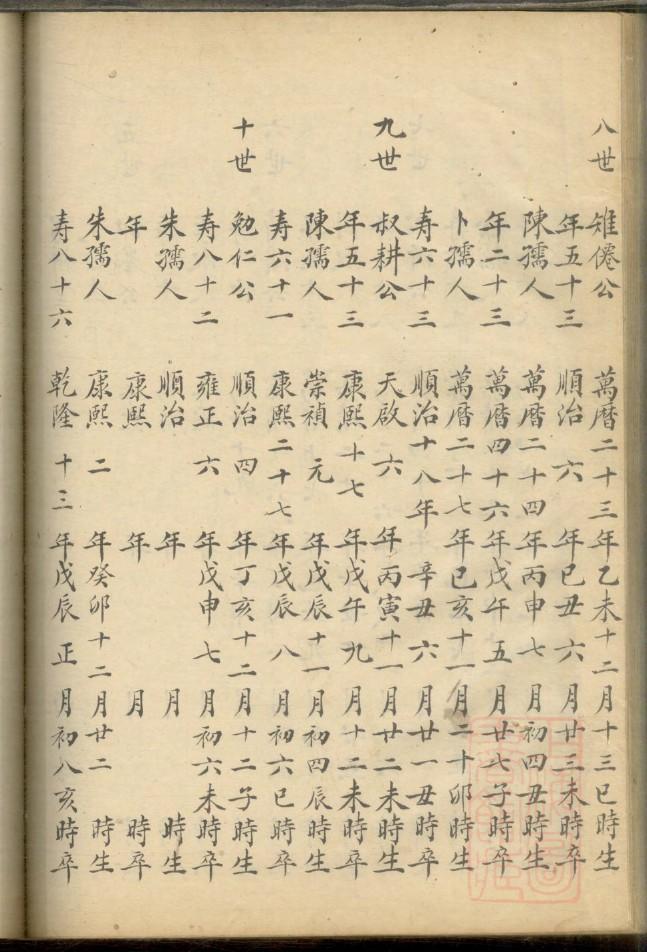 八世 雉僊公 萬曆二十三年乙未十二月十三巳時生
年五十三 順治六年己丑六月廿三未時卒
陳孺人 萬曆二十四年丙申七月初四丑時生
年二十三 萬曆四十六年戊午五月廿七子時卒
卜孺人 萬曆二十七年己亥十一月二十卯時生
寿六十三 順治十八年辛丑六月廿一丑時卒
九世 叔耕公 天啟六年丙寅十一月廿二未時生
年五十三 康熙十七年戊午九月十二未時卒
陳孺人 崇禎元年戊辰十一月初四辰時生
寿六十一 康熙二十七年戊辰八月初六巳時卒
十世 勉仁公 順治四年丁亥十二月十二子時生
寿八十二 雍正六年戊申七月初六未時卒
朱孺人 順治年月時生
年 康熙年月時卒
朱孺人 康熙二年癸卯十二月廿二時生
寿八十六 乾隆十三年戊辰正月初八亥時卒